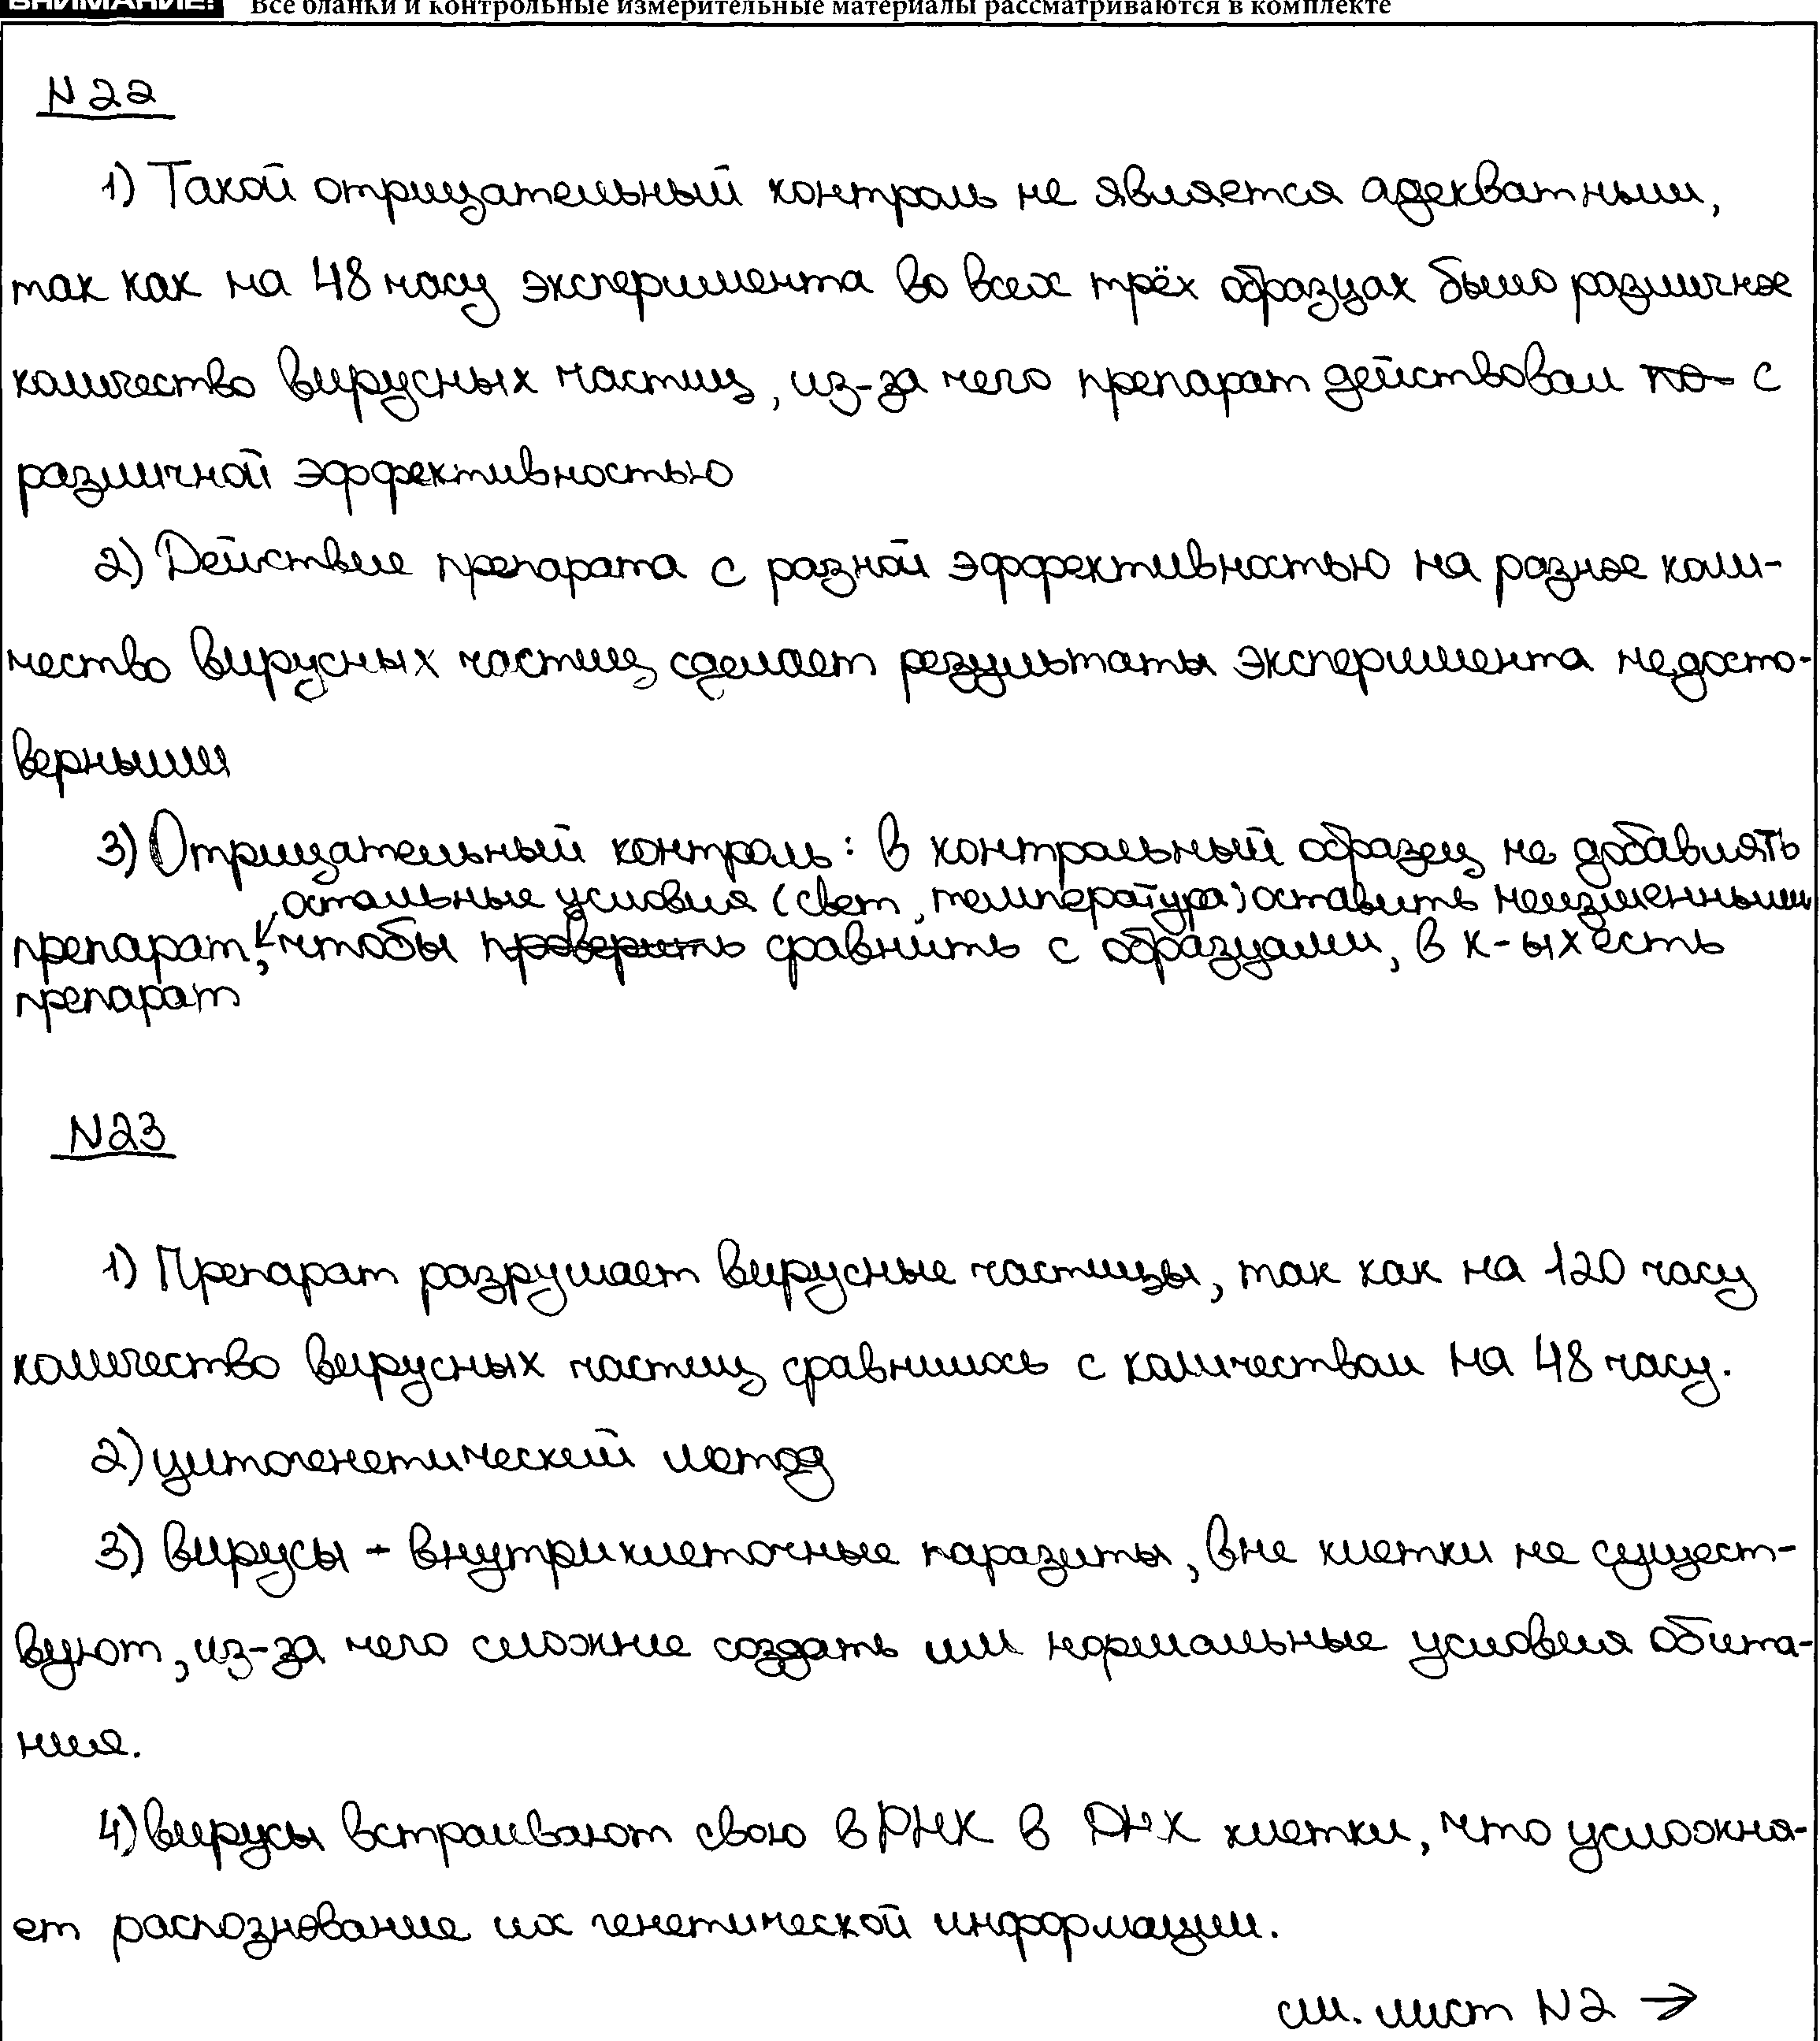 ВНИМАНИЕ! Все бланки и контрольные измерительные материалы рассматриваются в комплекте
N22
1) Такой отрицательный контроль не является адекватным,
так как на 48 часу эксперимента во всех трёх образцах было различное
количество вирусных частиц, из-за чего препарат действовал по- с
различной эффективностью
2) Действие препарата с разной эффективностью на разное коли-
чество вирусных частиц сделает результаты эксперимента недосто-
верными
3) Отрицательный контроль: в контрольный образец не добавлять
остальные условия (свет, температура) оставить неизменными
препарат, чтобы проверить сравнить с образцами, в к-ых есть
препарат
N23
1) Препарат разрушает вирусные частицы, так как на 120 часу
количество вирусных частиц сравнилось с количеством на 48 часу.
2) цитогенетический метод
3) вирусы - внутриклеточные паразиты, вне клетки не сущест-
вуют, из-за чего сложнее создать им нормальные условия обита-
ния.
4) вирусы встраивают свою вРНК в ДНК клетки, что усложня-
ет распознование их генетической информации.
см. лист N2 →